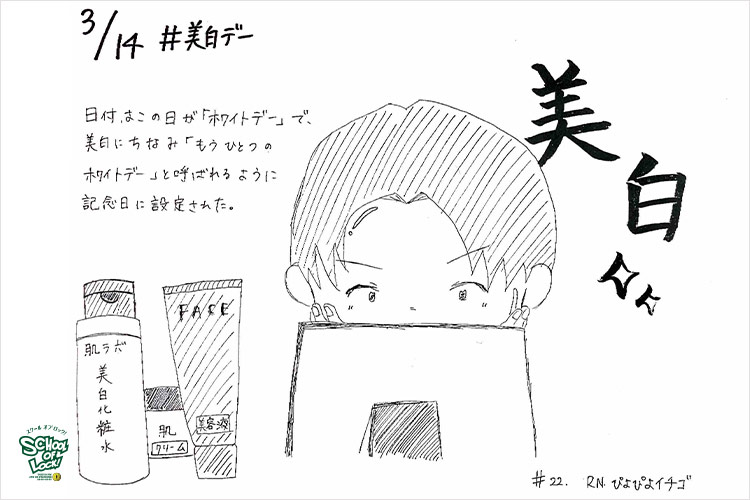 3/14 #美白デー
日付はこの日が「ホワイトデー」で、
美白にちなみ「もうひとつの
ホワイトデー」と呼ばれるように
記念日に設定された。
美白
FACE
肌ラボ
美白化粧水
肌
クリーム
美容液
スクール オブ ロック!
SCHOOL
OF
LOCK!
#22. R.N.ぴよぴよイチゴ